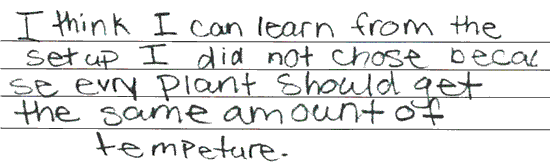 I think I can learn from the
set up I did not chose becau
se evry plant should get
the same amount of
tempeture.